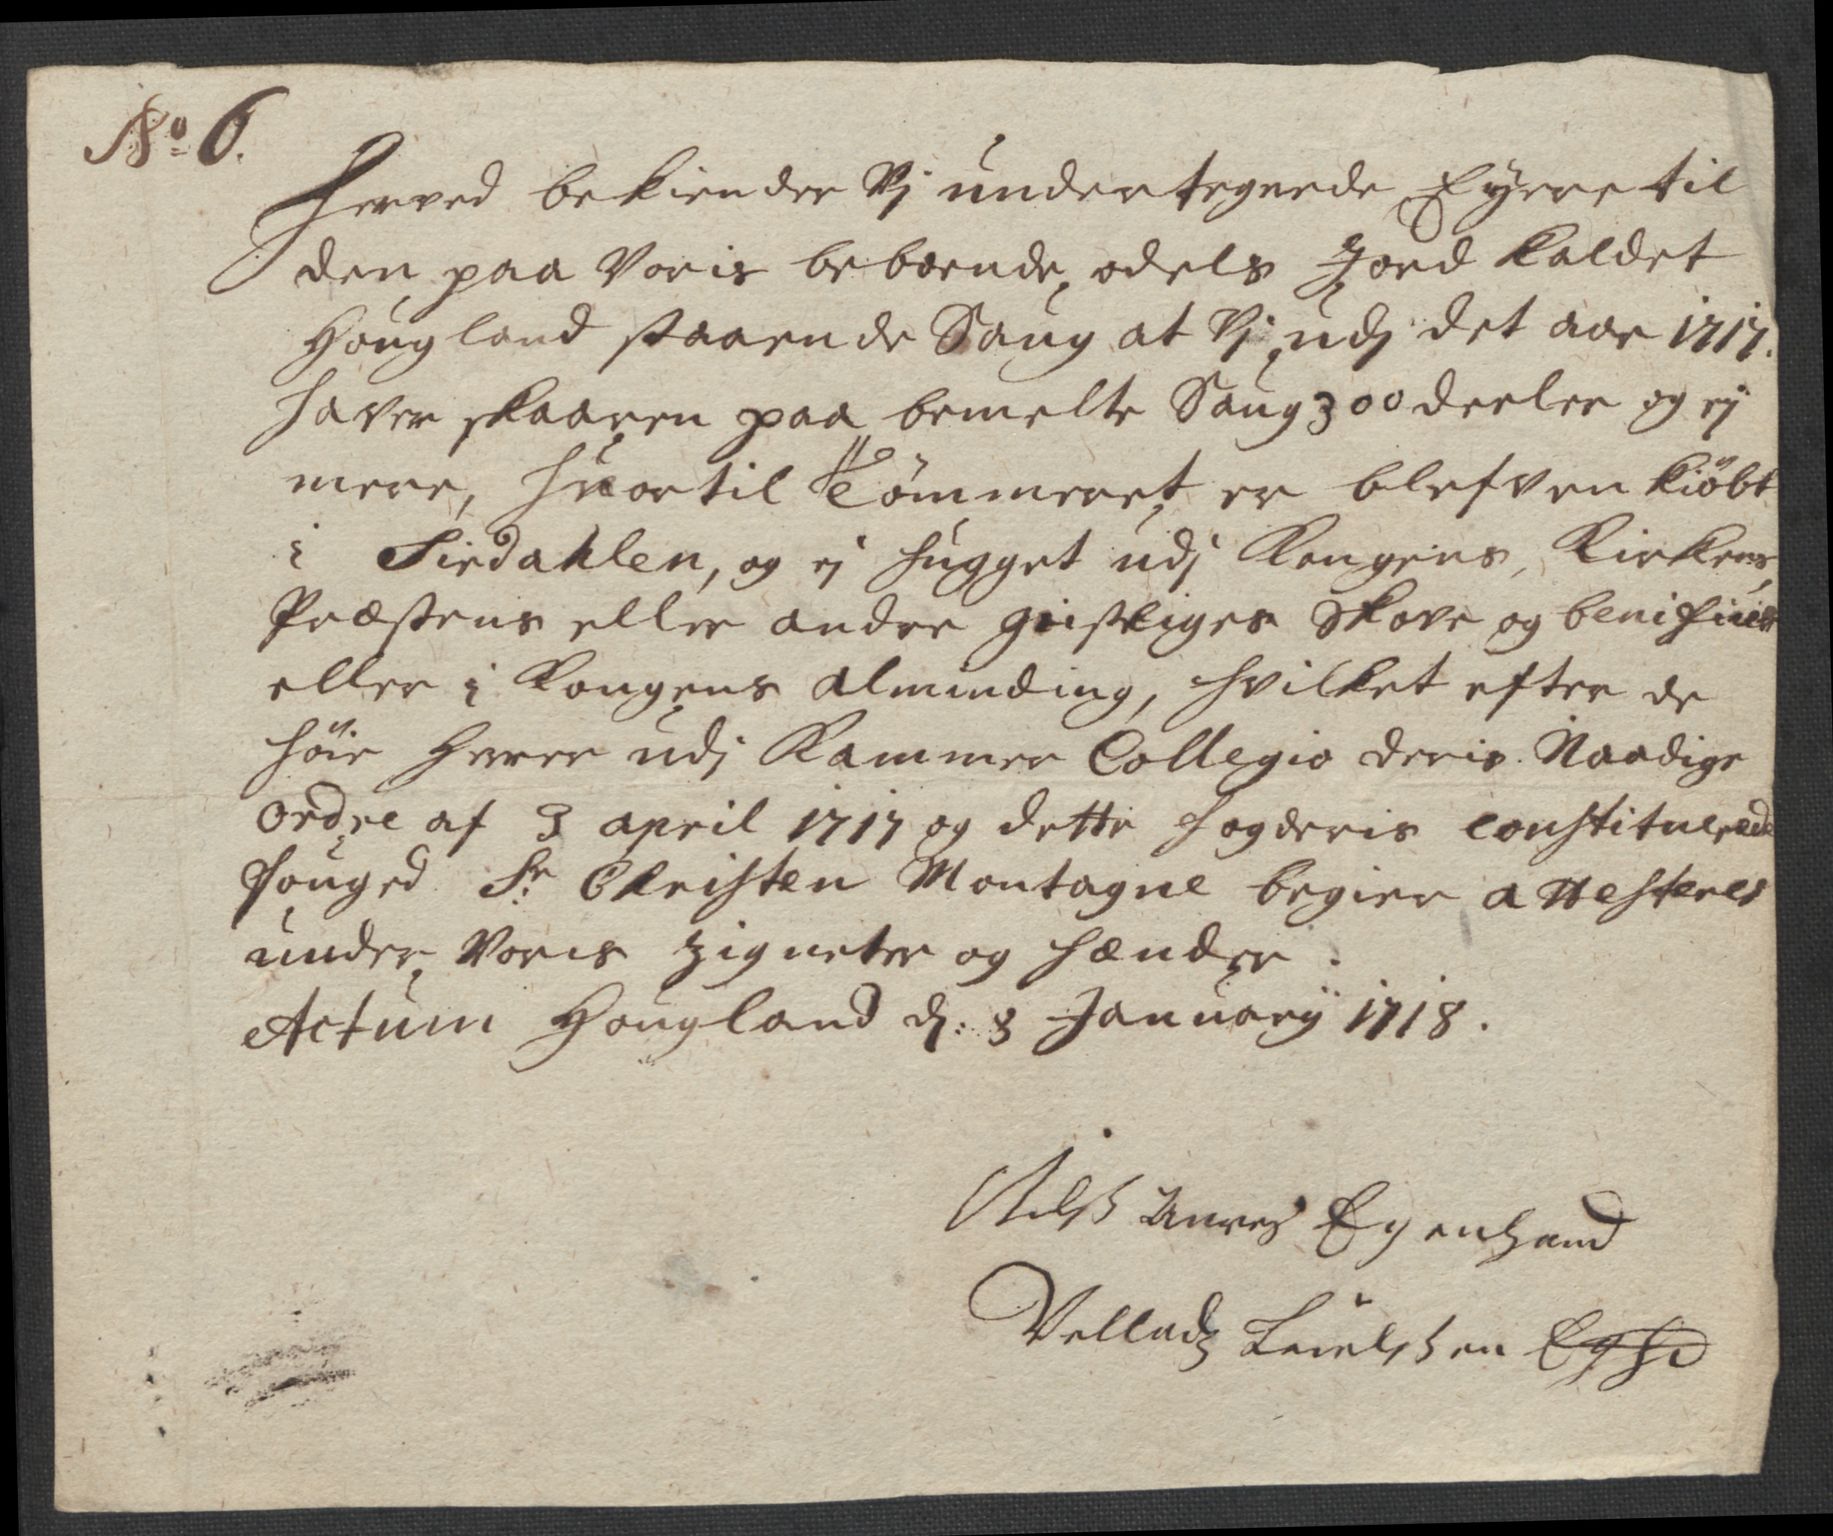 No 6.
Herved bekiender Vj undertegnede Eyere til
den paa Voris beboende odels Jord kaldet
Hougland staaende Saug at Vj udj det aar 1717.
haver skaaren paa bemelte Saug 300 deeler og ej
mere, huortil Tømmeret er blefven kiøbt
i Sirdahlen, og ej hugget udj Kongens, Kirkens,
Præstens eller andre giestliges Skove og benificier
eller i Kongens alminding, hvilket efter de
høie Herrer udj Kammer Collegio deris Naadige
ordre af 3 april 1717 og dette fogderis constituerede
fouged Sr Christen Montagne begier attesteres
under Voris Zigneter og hænder.
Actum Hougland d: 3 January 1718.
Egenhand
Eghd